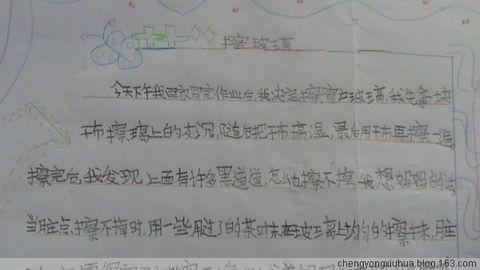 擦玻璃
今天下午我回家写完作业后,我决定擦窗户玻璃,我先拿一块
干布擦璃上的灰沉,随后把干布搞湿,最后用干布再擦一遍
擦完后,我发现上面有许多黑道道,怎么也擦不掉,我想妈妈的话
当脏点擦不掉时,用一些用过了的茶叶末在玻璃上均匀的擦抹,脏
chengyongxiuhua.blog.163.com